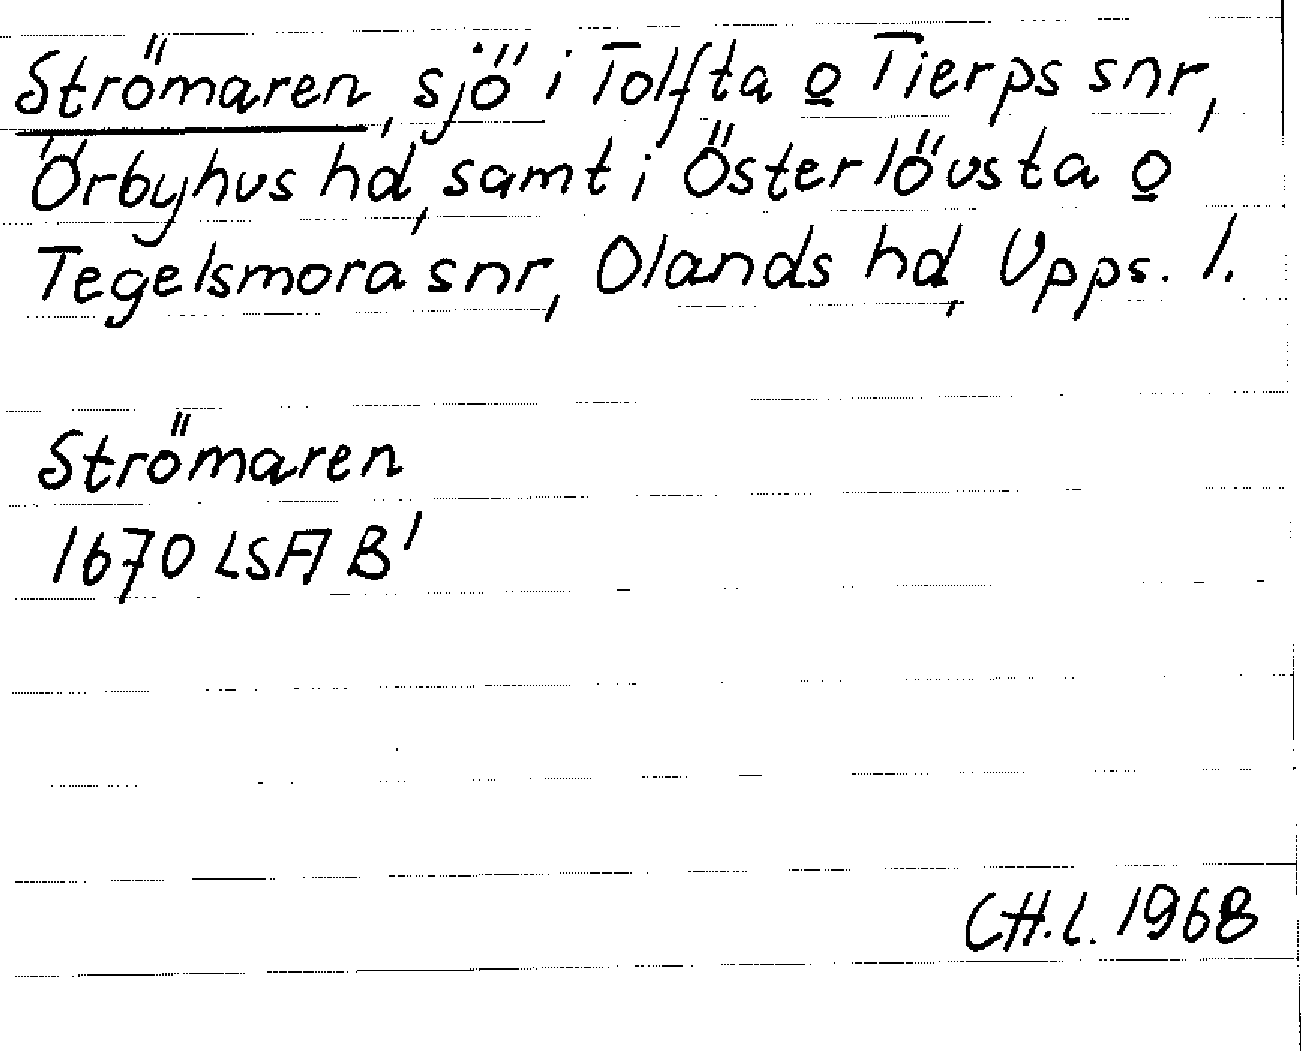 Strömaren, sjö i Tolfta o Tierps snr,
Örbyhus hd, samt i Österlövsta o
Tegelsmora snr, Olands hd, Upps. l.
Strömaren
1670 LSA B1
CH.L. 1968